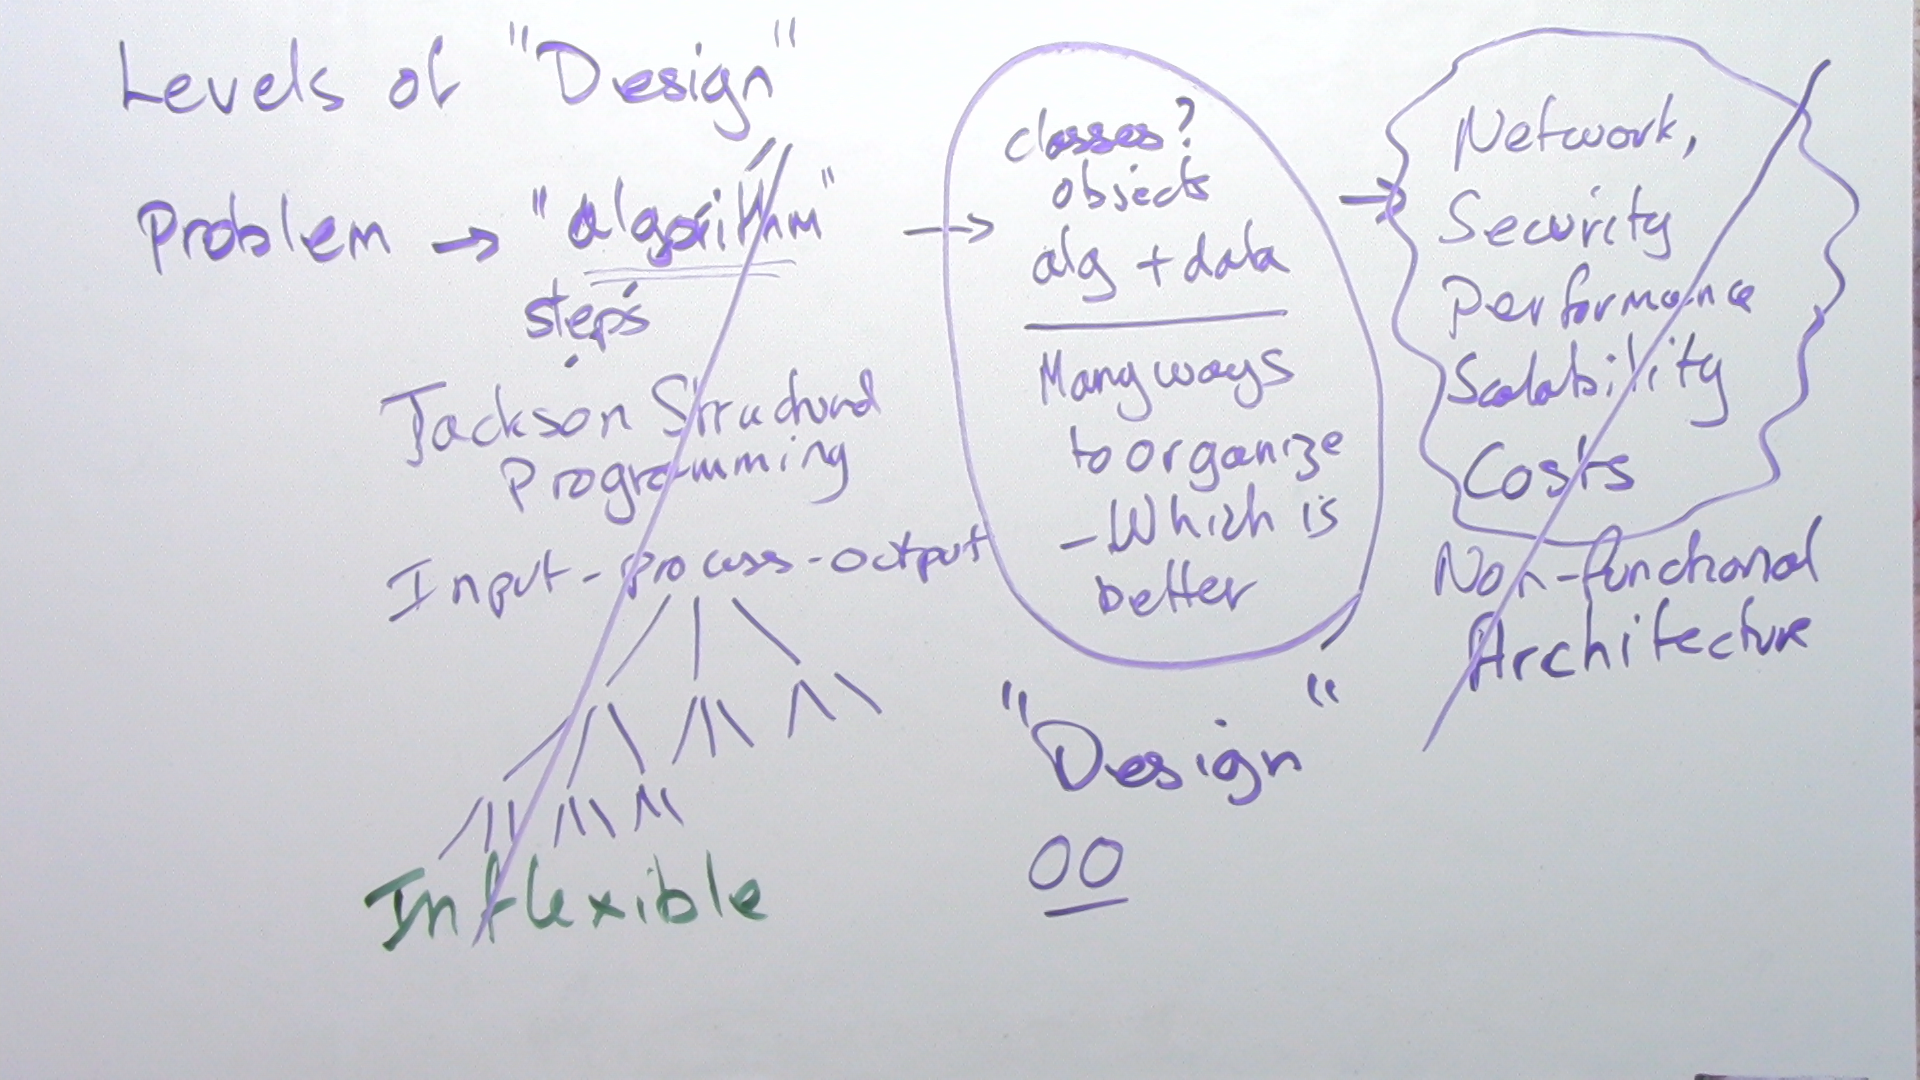 Levels of "Design"
Problem → "algorithm"
steps
Jackson Structured
Programming
Input-process-output
Inflexible
→
classes?
objects
alg + data
Many ways
to organize
- Which is
better
"Design"
OO
→
Network,
Security
Performance
Scalability
Costs
Non-functional
Architecture